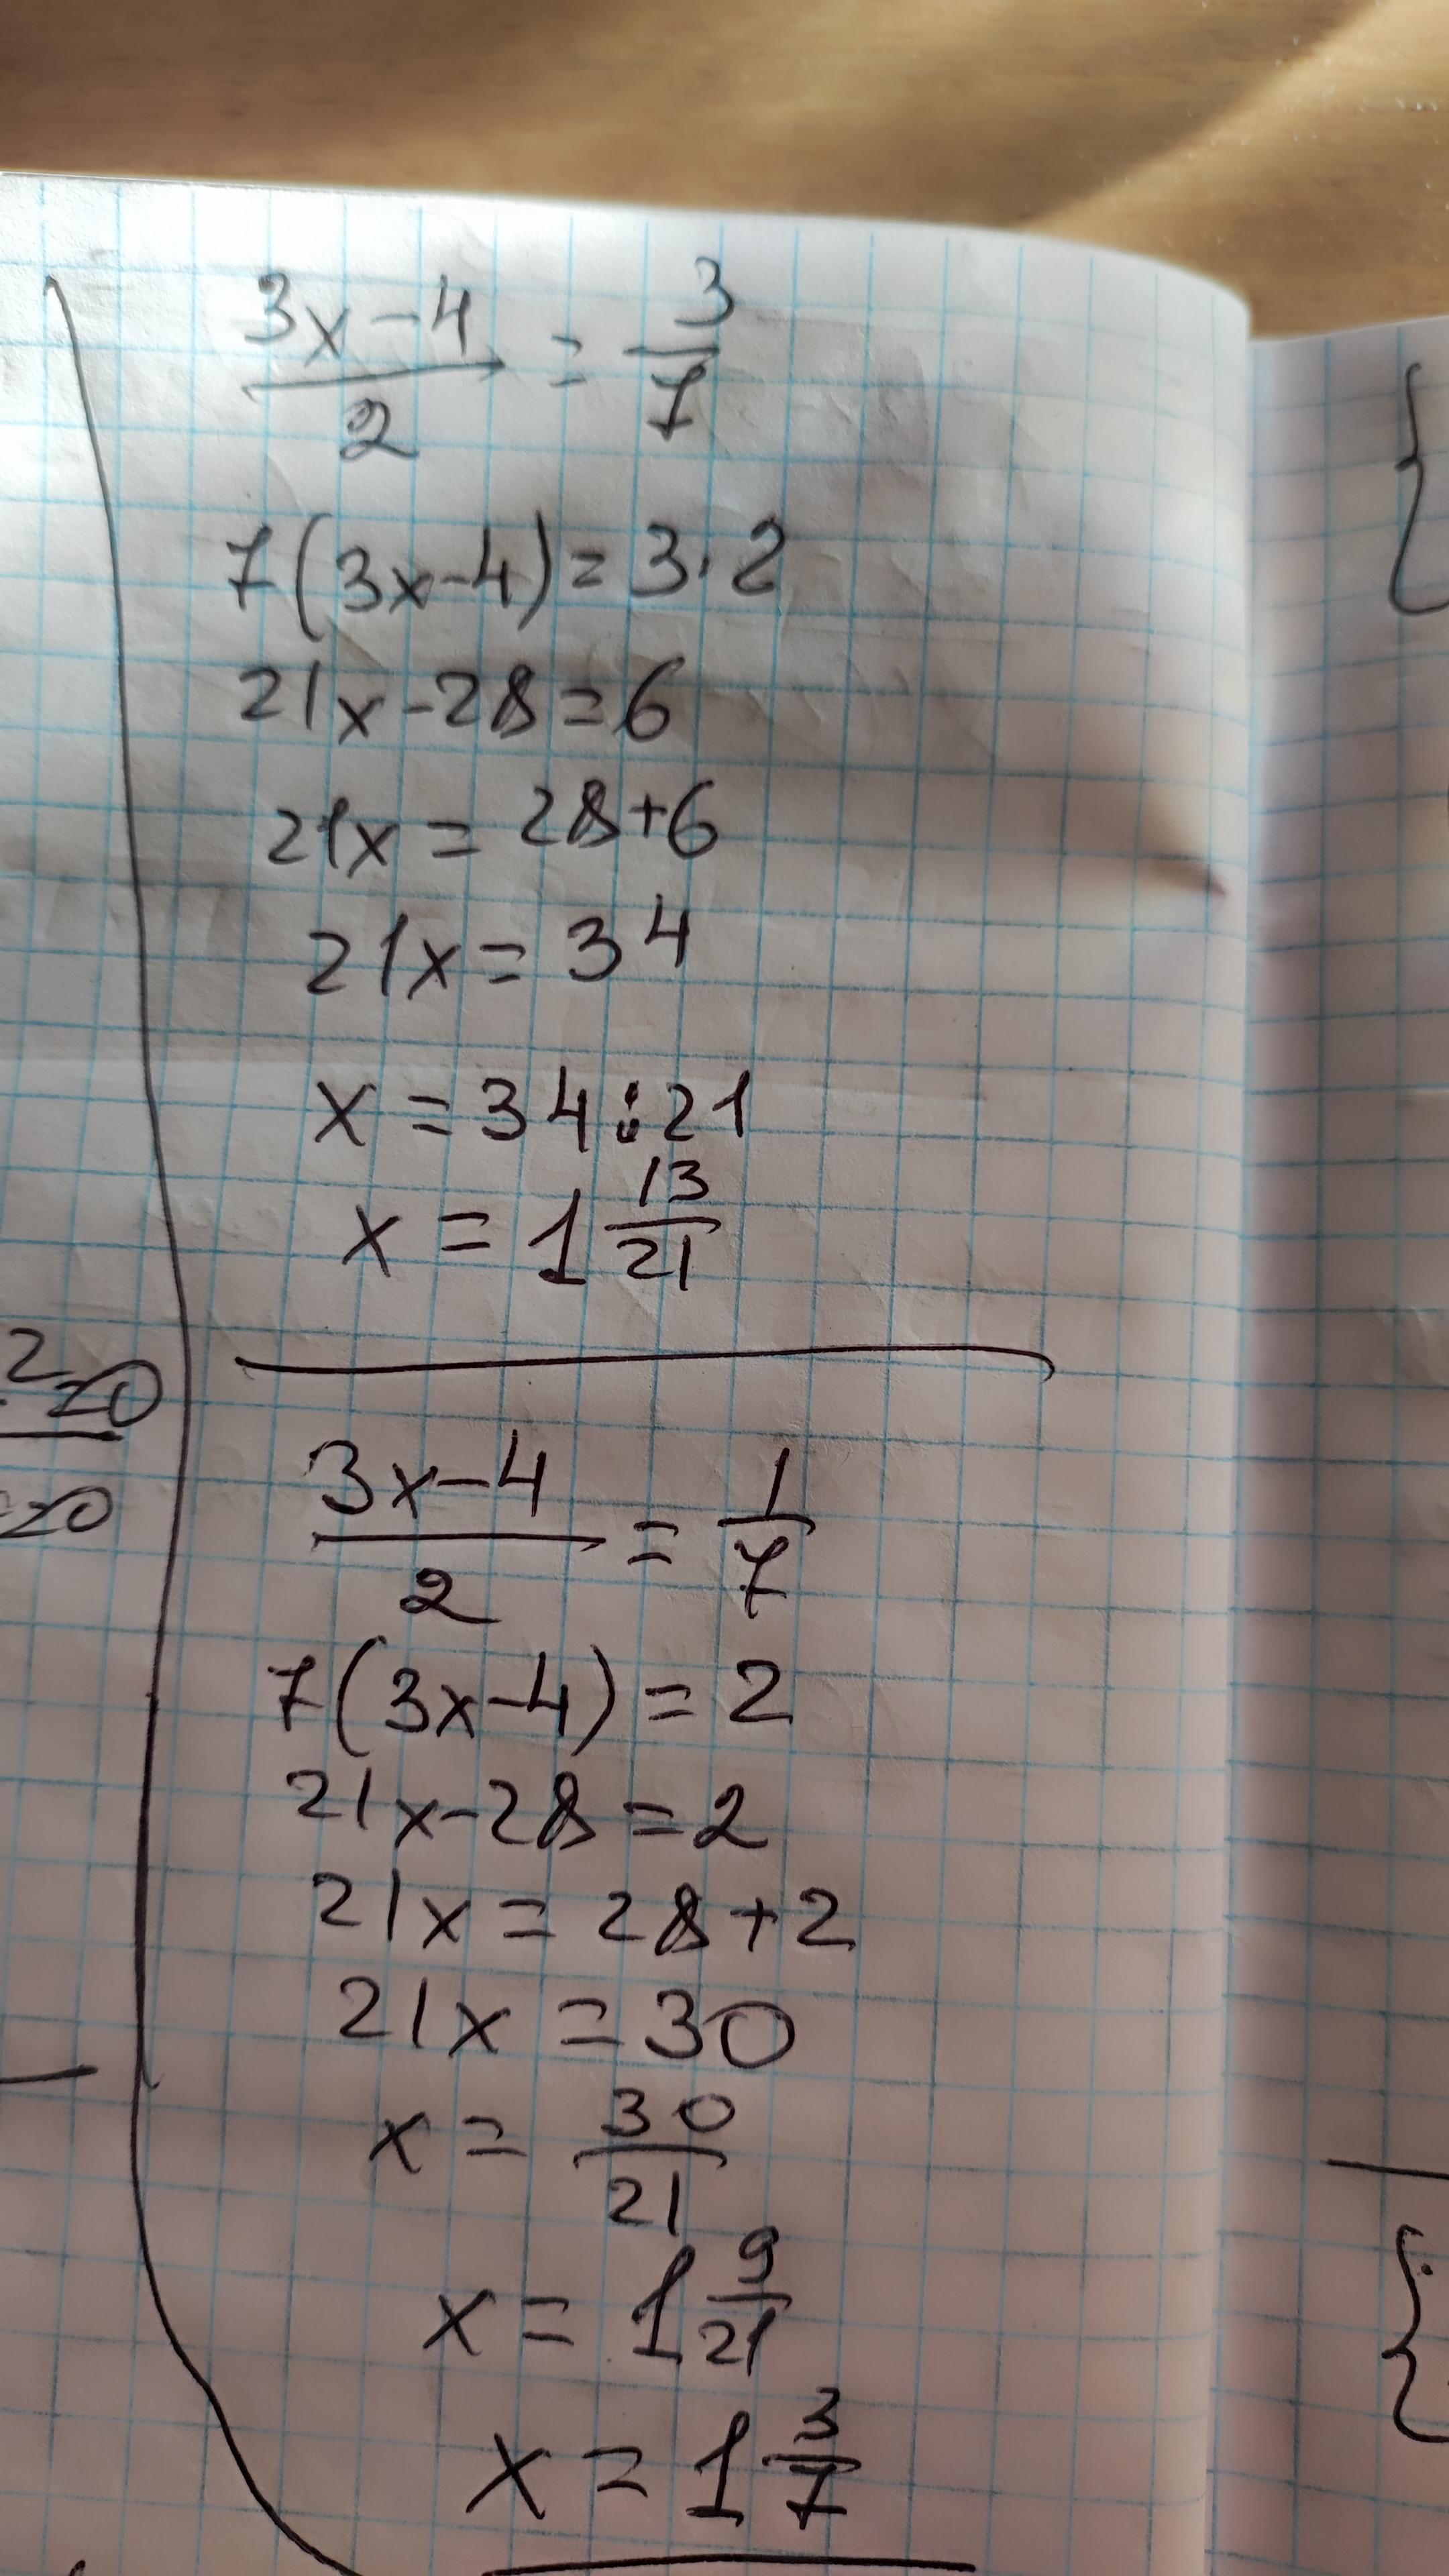 3x-4/2 = 3/7
7(3x-4)=3·2
21x-28=6
21x=28+6
21x=34
x=34:21
x=1 13/21
3x-4/2 = 1/7
7(3x-4)=2
21x-28=2
21x=28+2
21x=30
x=30/21
x=1 9/21
x=1 3/7